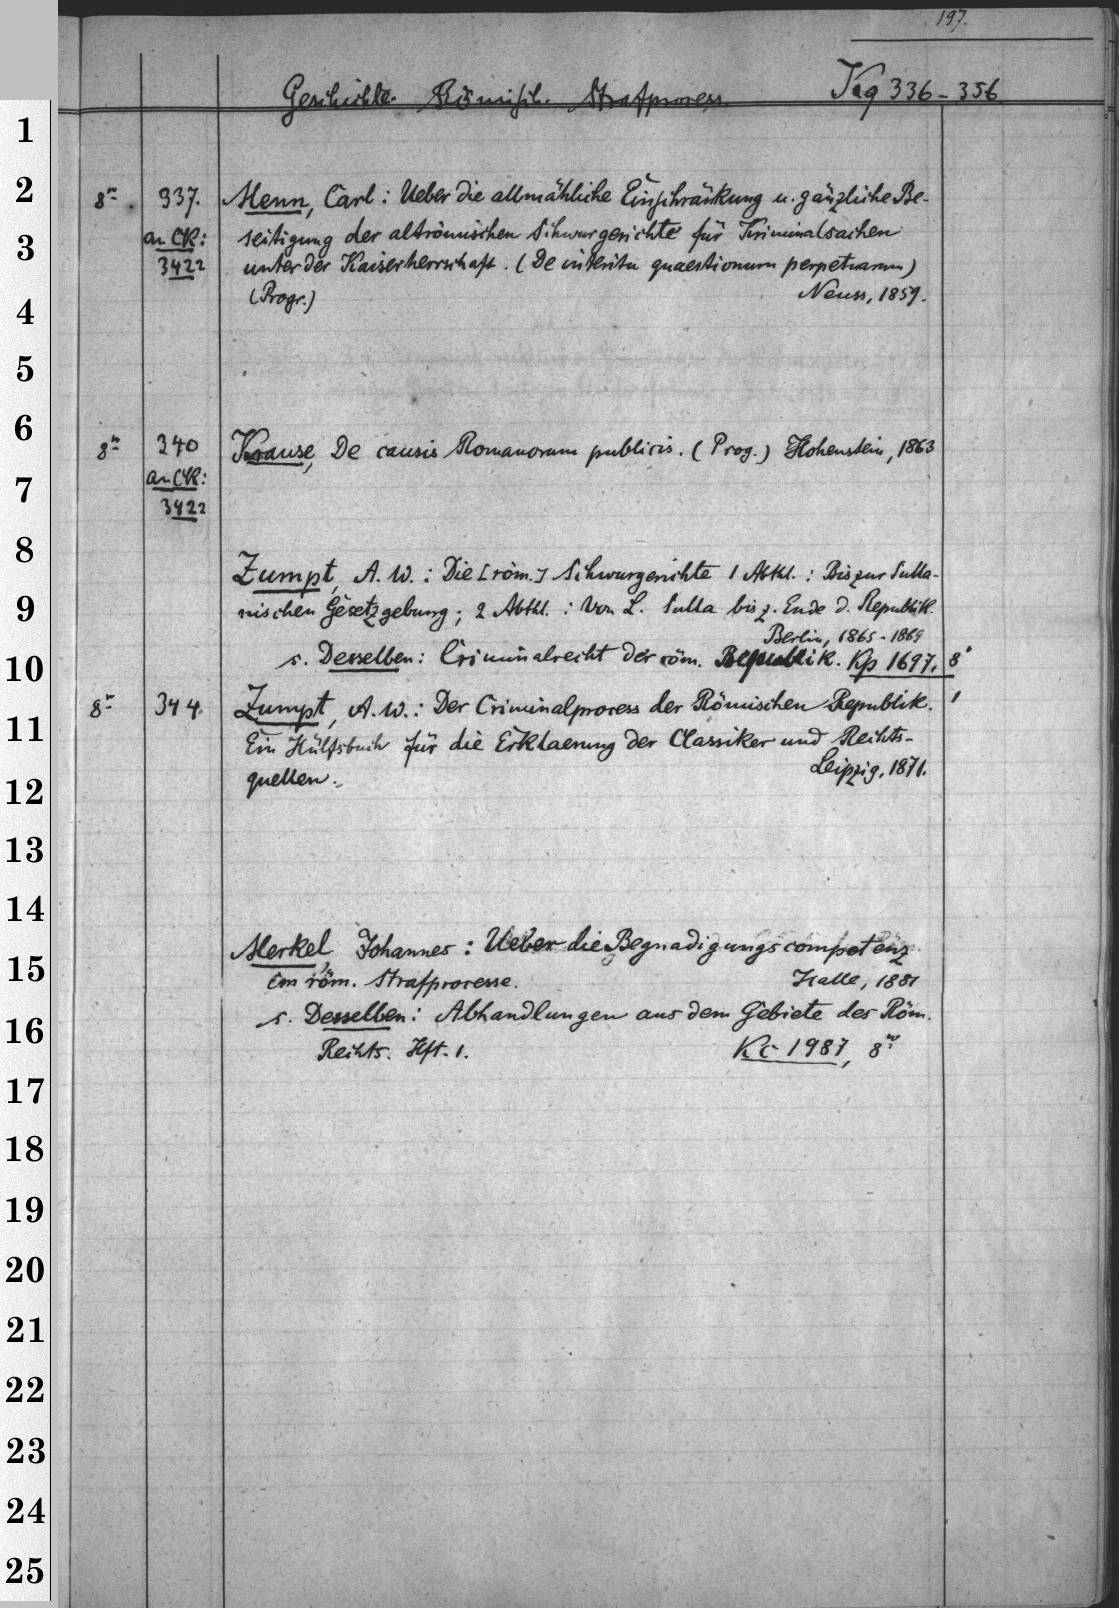 197.
Geschichte. Römisch. Strafprocess. Kq 336-356
8º 337. Menn, Carl: Ueber die allmähliche Einschränkung u. gänzliche Be-
an CR: seitigung der altrömischen Schwurgerichte für Kriminalsachen
3422 unter der Kaiserherrschaft. (De interitu quaestionum perpetuarum)
(Progr.) Neuss, 1859.
8º 340 Krause, De causis Romanorum publicis. (Prog.) Hohenstein, 1863
an CR:
3422
Zumpt, A. W.: Die [röm.] Schwurgerichte 1 Abthl.: Bis zur Sulla-
nischen Gesetzgebung; 2 Abthl.: Von L. Sulla bis z. Ende d. Republik.
Berlin, 1865-1869
s. Desselben: Criminalrecht der röm. Republik. Kp 1697, 8º
8º 344. Zumpt, A. W.: Der Criminalprocess der Römischen Republik. 1
Ein Hülfsbuch für die Erklaerung der Classiker und Rechts-
quellen. Leipzig, 1871.
Merkel, Johannes: Ueber die Begnadigungscompetenz
im röm. Strafprocesse. Halle, 1881
s. Desselben: Abhandlungen aus dem Gebiete des Röm.
Rechts. Hft. 1. Kc 1987, 8º
1
2
3
4
5
6
7
8
9
10
11
12
13
14
15
16
17
18
19
20
21
22
23
24
25